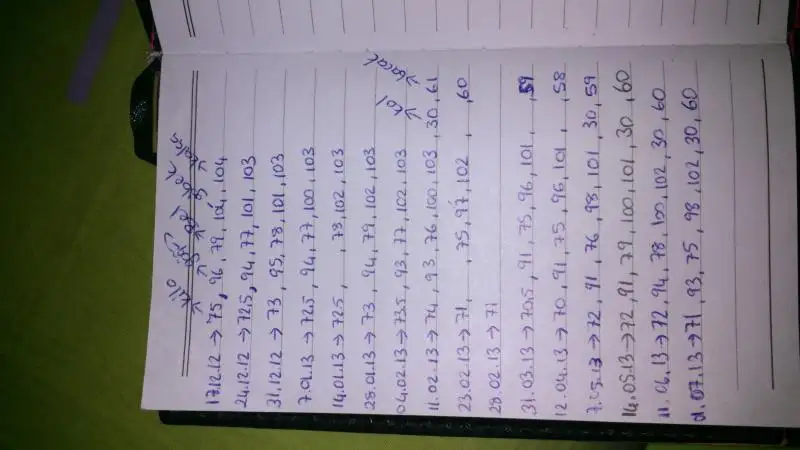 kilo bel
17.12.12 → 75, 96, 79, 104, 104
24.12.12 → 72.5, 94, 77, 101, 103
31.12.12 → 73, 95, 78, 101, 103
7.01.13 → 72.5, 94, 77, 100, 103
14.01.13 → 72.5, , 78, 102, 103
28.01.13 → 73, 94, 79, 102, 103
kol bacak
04.02.13 → 73.5, 93, 77, 102, 103
11.02.13 → 74, 93, 76, 100, 103, 30, 61
23.02.13 → 71, , 75, 97, 102, , 60
28.02.13 → 71
31.03.13 → 70.5, 91, 75, 96, 101, , 59
12.04.13 → 70, 91, 75, 96, 101, , 58
7.05.13 → 72, 91, 76, 98, 101, 30, 59
14.05.13 → 72, 91, 79, 100, 101, 30, 60
11.06.13 → 72, 94, 78, 100, 102, 30, 60
01.07.13 → 71, 93, 75, 98, 102, 30, 60